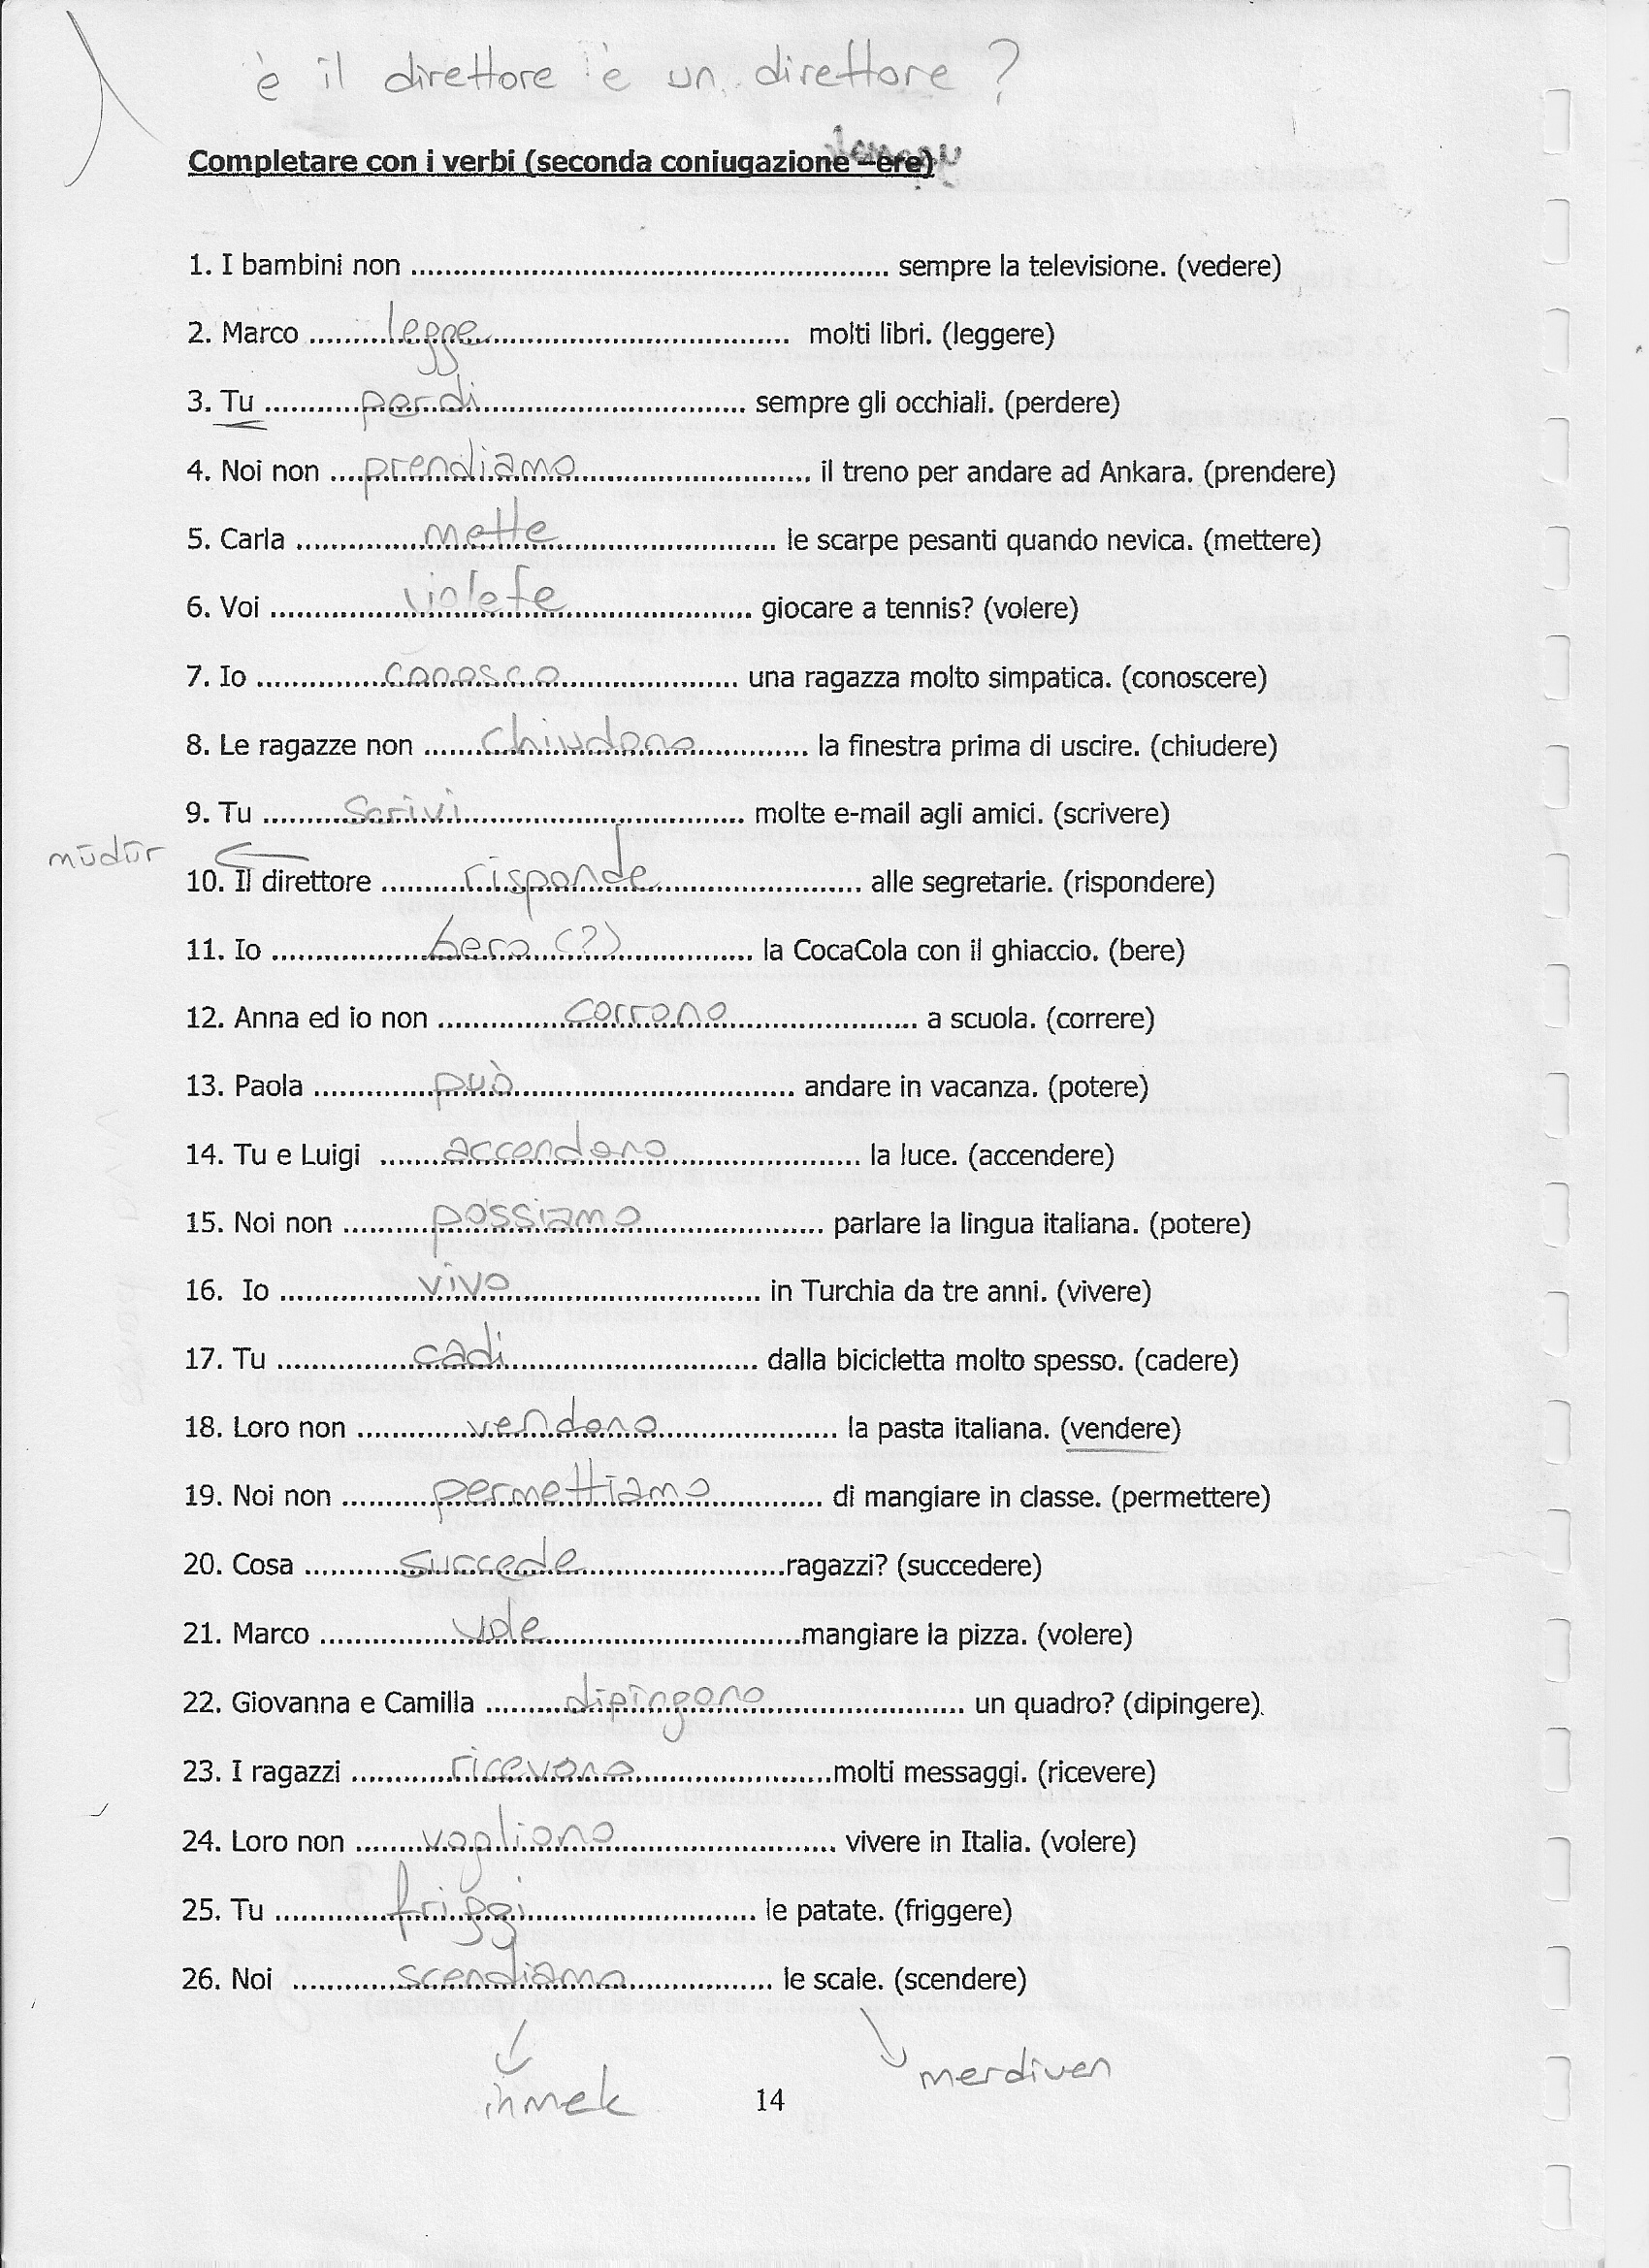 è il direttore è un direttore ?
Completare con i verbi (seconda coniugazione –ere)
1. I bambini non ........................................................ sempre la televisione. (vedere)
2. Marco .........legge................................... molti libri. (leggere)
3. Tu ...........perdi............................... sempre gli occhiali. (perdere)
4. Noi non ....prendiamo........................... il treno per andare ad Ankara. (prendere)
5. Carla ...............mette.......................... le scarpe pesanti quando nevica. (mettere)
6. Voi ................violete...................... giocare a tennis? (volere)
7. Io ...............conosco..................... una ragazza molto simpatica. (conoscere)
8. Le ragazze non .......chiudono............. la finestra prima di uscire. (chiudere)
9. Tu ..........scrivi................................. molte e-mail agli amici. (scrivere)
müdür
10. Il direttore ..........risponde........................ alle segretarie. (rispondere)
11. Io ..................bero (?)................ la CocaCola con il ghiaccio. (bere)
12. Anna ed io non ...............corrono...................... a scuola. (correre)
13. Paola ..............può................................. andare in vacanza. (potere)
14. Tu e Luigi .......accendono....................... la luce. (accendere)
15. Noi non ..........possiamo..................... parlare la lingua italiana. (potere)
16. Io ................vivo............................. in Turchia da tre anni. (vivere)
17. Tu ................cadi............................. dalla bicicletta molto spesso. (cadere)
18. Loro non .............vendono..................... la pasta italiana. (vendere)
19. Noi non ..........permettiamo............. di mangiare in classe. (permettere)
20. Cosa ...........succede........................ragazzi? (succedere)
21. Marco ................vole..............................mangiare la pizza. (volere)
22. Giovanna e Camilla .........dipingono....................... un quadro? (dipingere)
23. I ragazzi ...........ricevono.......................molti messaggi. (ricevere)
24. Loro non .......vogliono.......................... vivere in Italia. (volere)
25. Tu .............friggi............................ le patate. (friggere)
26. Noi ............scendiamo................. le scale. (scendere)
inmek
merdiven
14